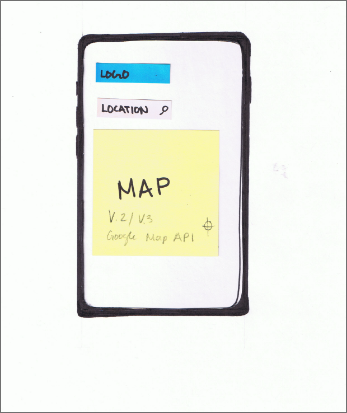 LOGO
LOCATION
MAP
V.2/ V.3
Google Map API